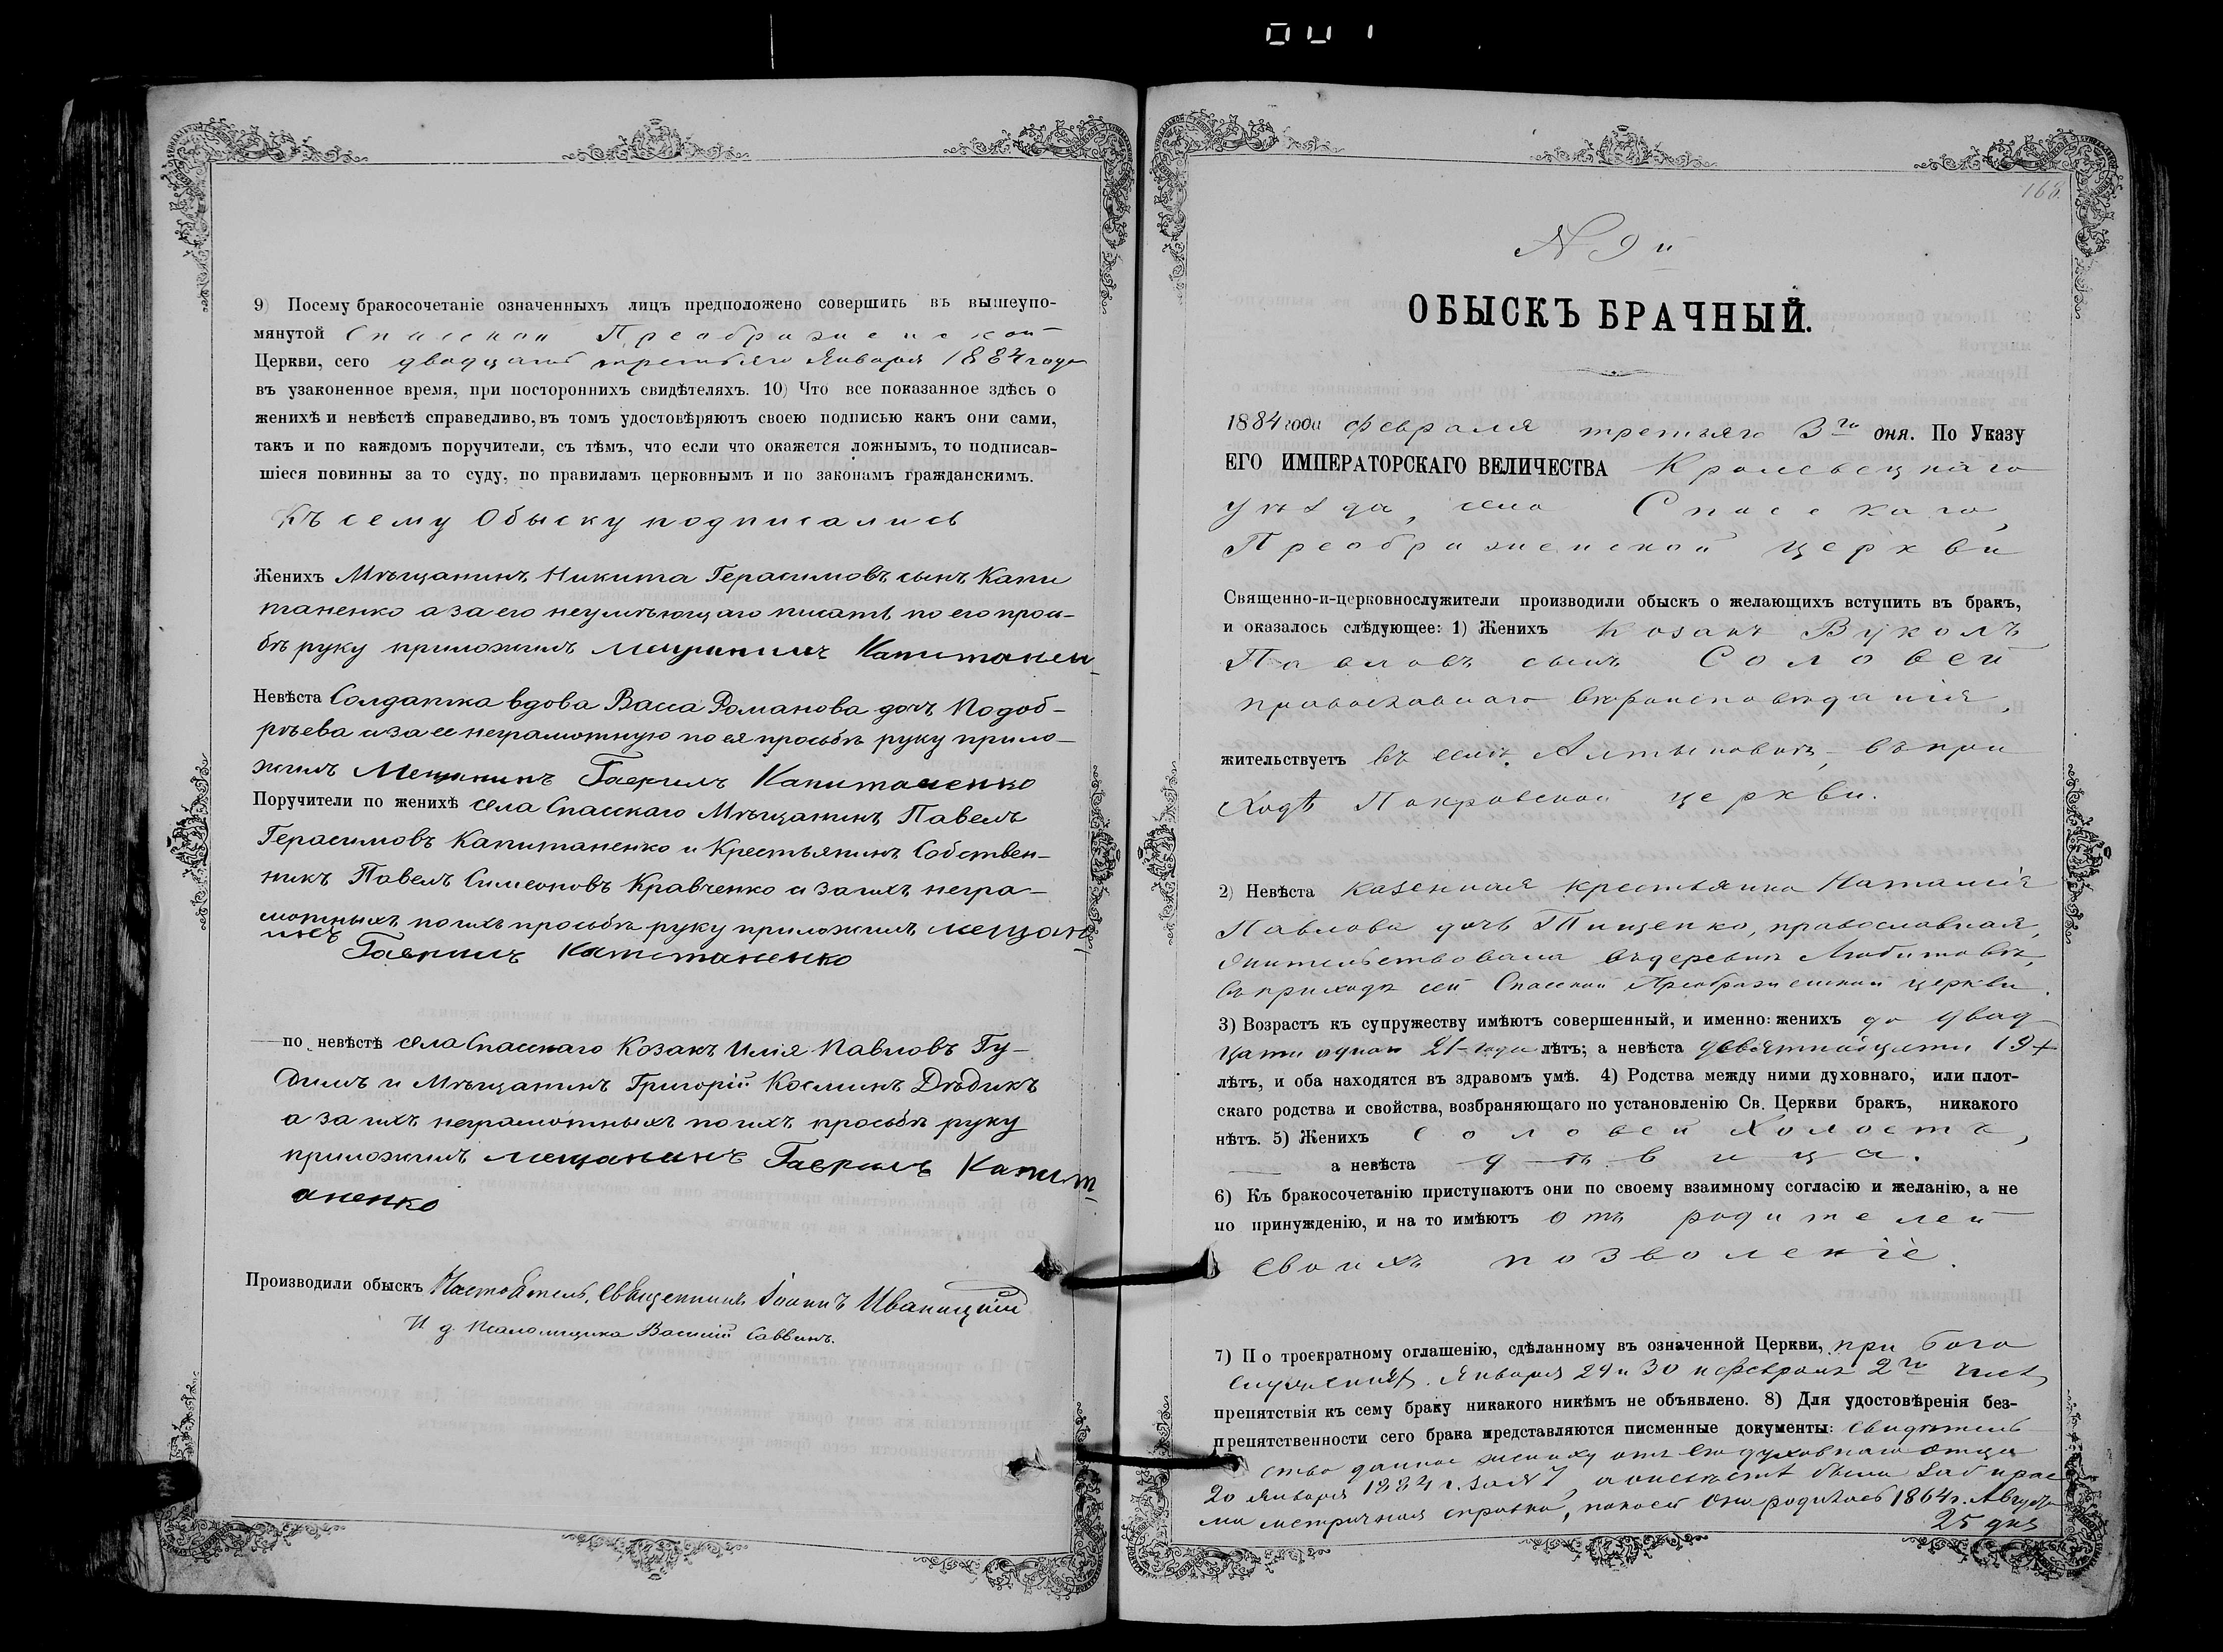 9) Посему бракосочетаніе означенныхъ лицъ предположено совершить въ вышеупо-
мянутой Спасской Преображенской
Церкви, сего двадцать третьяго Января 1884 года
въ узаконенное время, при постороннихъ свидѣтеляхъ. 10) Что все показанное здѣсь о
женихѣ и невѣстѣ справедливо, въ томъ удостовѣряютъ своею подписью какъ они сами,
такъ и по каждомъ поручители, съ тѣмъ, что если что окажется ложнымъ, то подписав-
шіеся повинны за то суду, по правиламъ церковнымъ и по законамъ гражданскимъ.
Къ сему Обыску подписались
Женихъ Мѣщанинъ Никита Герасимовъ сынъ Капи
таненко а за его неумѣющаго писать по его прозь-
бѣ руку приложилъ мещанинъ Капитанен
Невѣста Солдатка вдова Васса Романова дочь Подоб-
рѣева а за ее неграмотную по ея просьбѣ руку прило-
жилъ Мещанинъ Гаврилъ Капитаненко
Поручители по женихѣ села Спасскаго Мѣщанинъ Павелъ
Герасимовъ Капитаненко и Крестьянинъ Собствен-
никъ Павелъ Симеоновъ Кравченко а за ихъ негра-
мотныхъ по ихъ просьбѣ руку приложилъ мещан
инъ Гаврилъ Капитаненко
по невѣстѣ села Спасскаго Козакъ Илія Павловъ Гу-
димъ и Мѣщанинъ Григорій Космінъ Дѣдикъ
а за ихъ неграмотныхъ по ихъ просьбѣ руку
приложилъ мещанинъ Гаврилъ Капит
аненко
Производили обыскъ Настоятель, Священникъ Іоаннъ Иваницкій
И д. Псаломщика Василій Саввинъ.
168
N 9й
ОБЫСКЪ БРАЧНЫЙ.
1884 года февраля третьяго 3го дня. По Указу
ЕГО ИМПЕРАТОРСКАГО ВЕЛИЧЕСТВА Кролевецкаго
уѣзда, села Спасскаго,
Преображенской церкви
Священно-и-церковнослужители производили обыскъ о желающихъ вступить въ бракъ,
и оказалось слѣдующее: 1) Женихъ Козакъ Вуколъ
Павловъ сынъ Соловей
православнаго вѣроисповѣданія,
жительствуетъ въ селѣ Алтыновкѣ, въ при
ходѣ Покровской церкви.
2) Невѣста казенная крестьянка Наталія
Павлова дочь Тищенко, православная,
жительствовала въ деревнѣ Любитовкѣ,
въ приходѣ сей Спасской Преображенской церкви.
3) Возрастъ къ супружеству имѣютъ совершенный, и именно: женихъ до двад
цати одного 21-года лѣтъ; а невѣста девятнадцати 19ть
лѣтъ, и оба находятся въ здравомъ умѣ. 4) Родства между ними духовнаго, или плот-
скаго родства и свойства, возбраняющаго по установленію Св. Церкви бракъ, никакого
нѣтъ. 5) Женихъ Соловей Холостъ,
а невѣста дѣвица.
6) Къ бракосочетанію приступаютъ они по своему взаимному согласію и желанію, а не
по принужденію, и на то имѣютъ отъ родителей
своихъ позволеніе.
7) По троекратному оглашенію, сдѣланному въ означенной Церкви, при бого
служеніях Января 29 и 30 и февраля 2го числ,
препятствія къ сему браку никакого никѣмъ не объявлено. 8) Для удостовѣренія без-
препятственности сего брака представляются писменные документы: свидѣтель
ство данное жениху отъ его духовнаго отца
20 января 1884 г. за N 7, а о невѣстѣ была забирае
ма метричная справка, по коей она родилась 1864 г. Август
25 дня